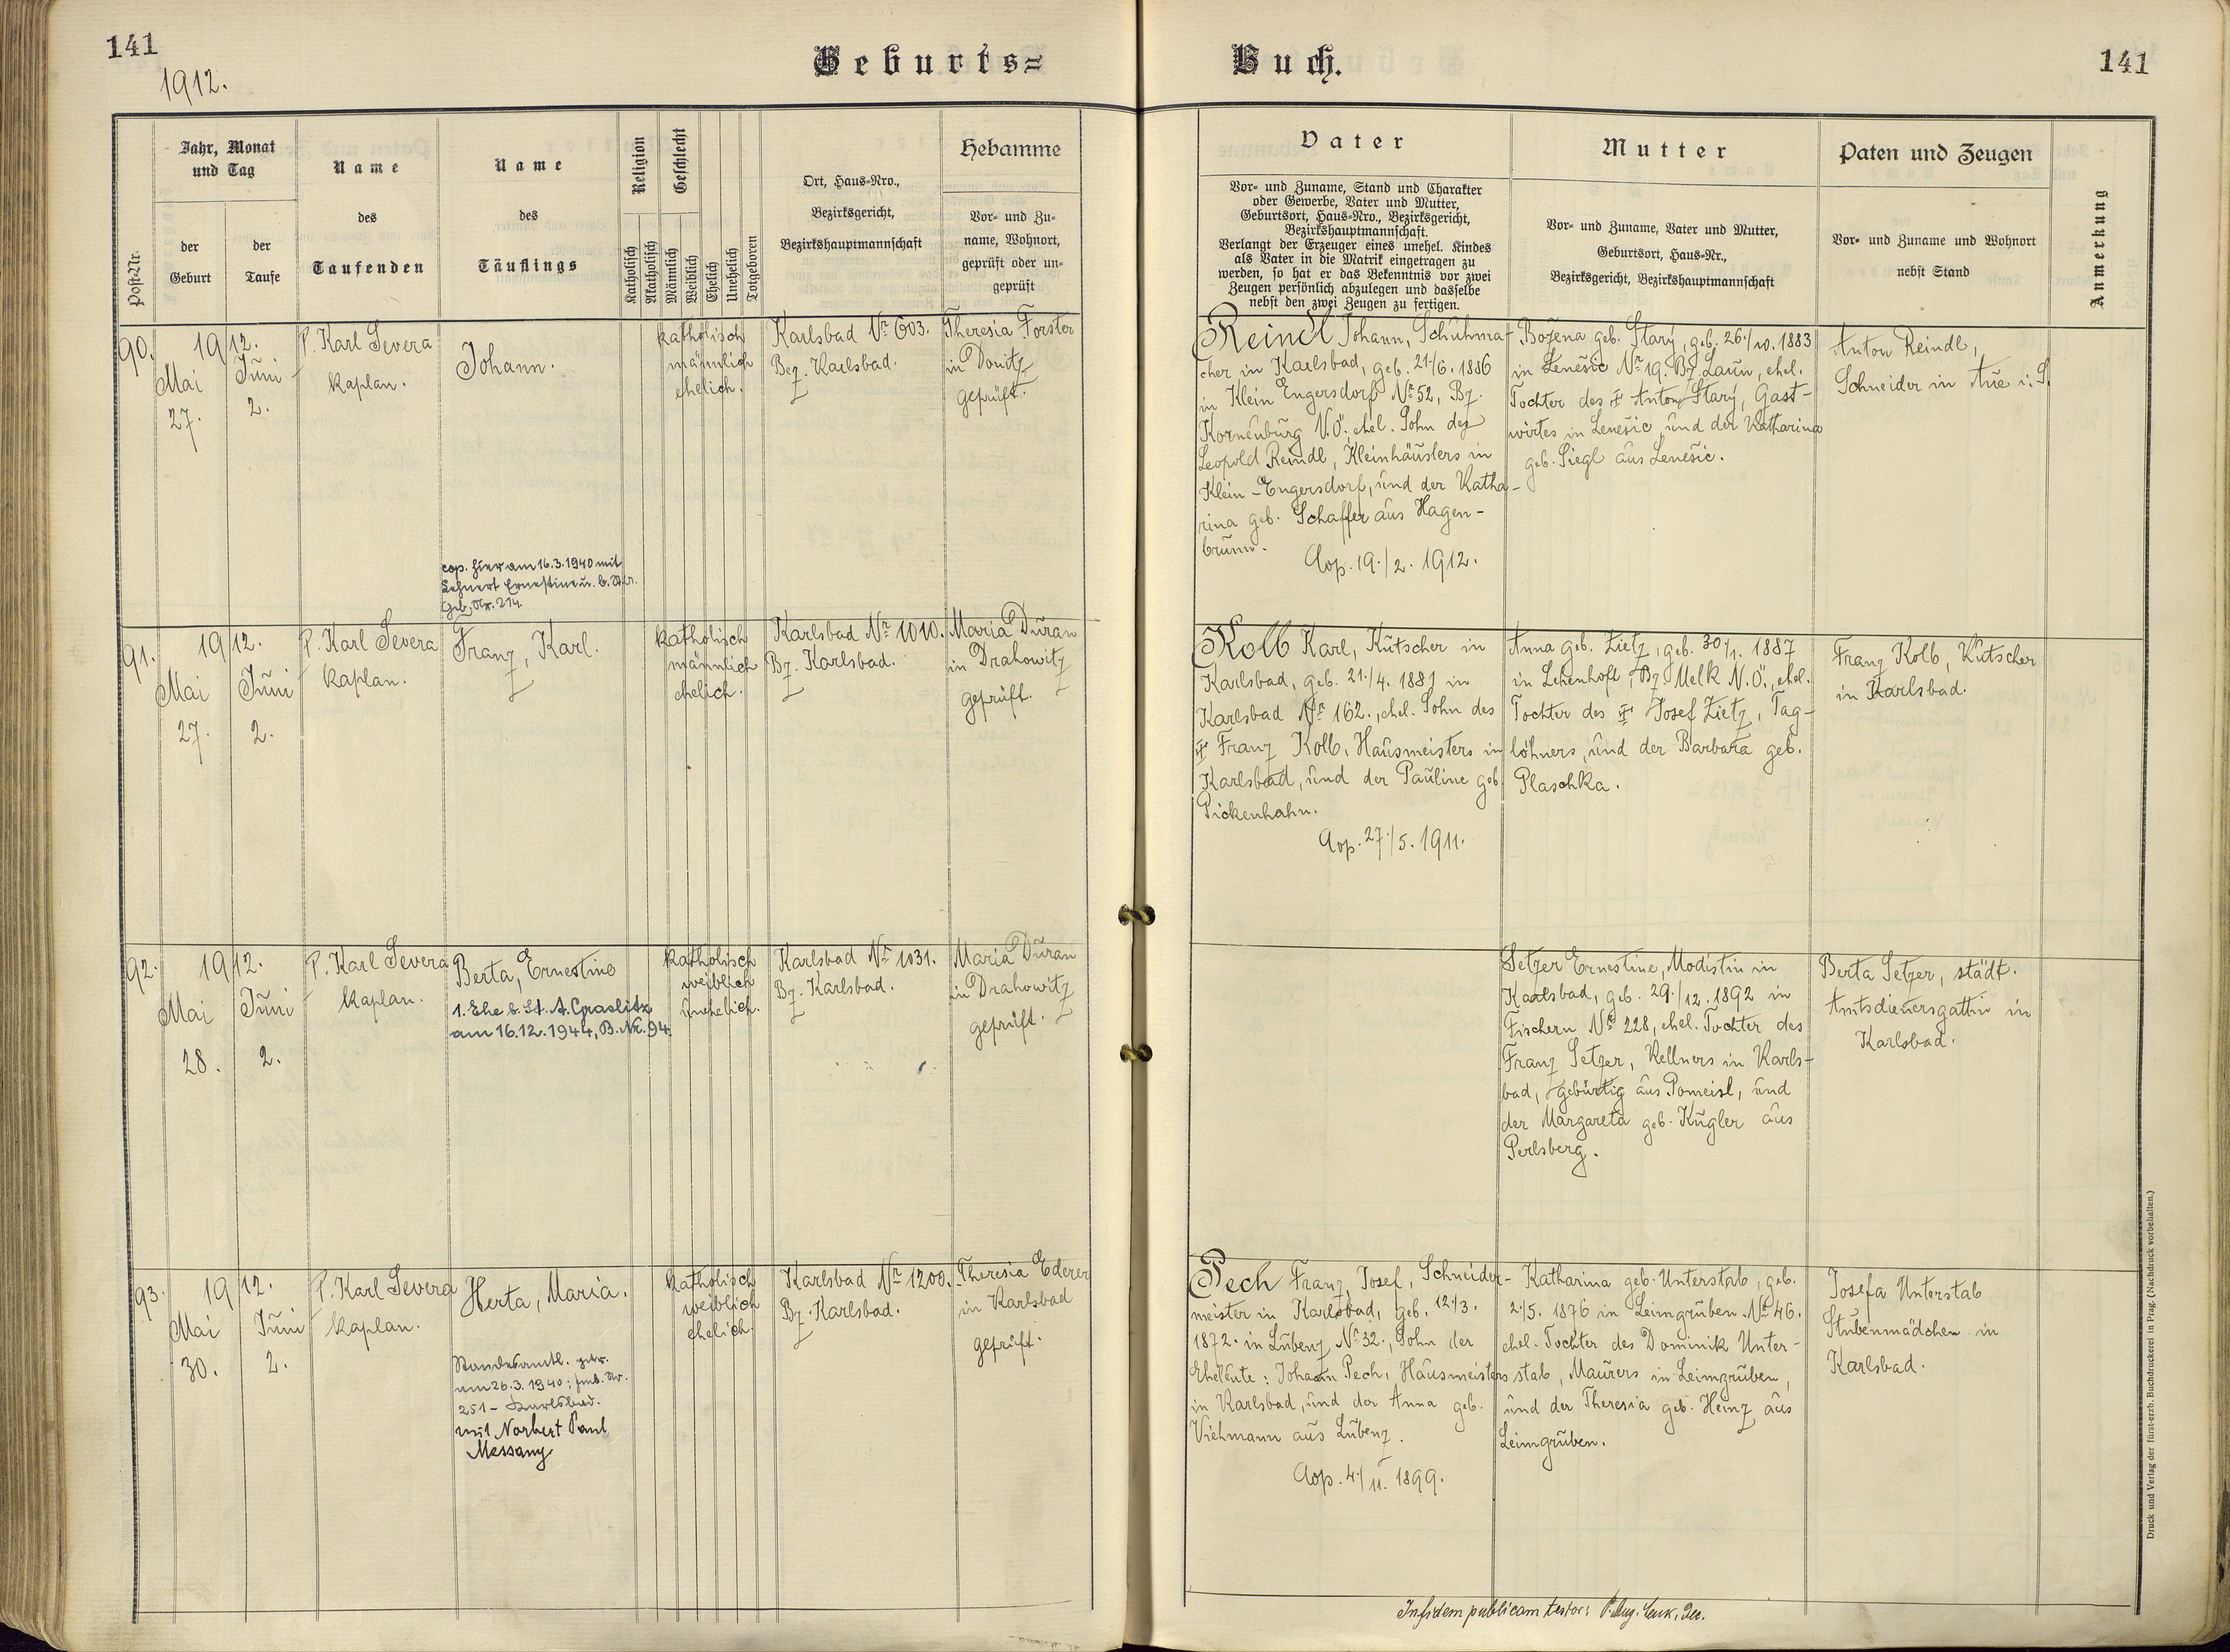 141
1912.
Geburts=
Buch.
141
Post-Nr.
Jahr, Monat
und Tag
der
Geburt
der
Taufe
Name
des
Taufenden
Name
des
Täuflings
Religion
Katholisch
Akatholisch
Geschlecht
Männlich
Weiblich
Ehelich
Unehelich
Totgeboren
Ort, Haus=Nro.,
Bezirksgericht,
Bezirkshauptmannschaft
Hebamme
Vor= und Zu=
name, Wohnort,
geprüft oder un=
geprüft
Vater
Vor= und Zuname, Stand und Charakter
oder Gewerbe, Vater und Mutter,
Geburtsort, Haus=Nro., Bezirksgericht,
Bezirkshauptmannschaft.
Verlangt der Erzeuger eines unehel. Kindes
als Vater in die Matrik eingetragen zu
werden, so hat er das Bekenntnis vor zwei
Zeugen persönlich abzulegen und dasselbe
nebst den zwei Zeugen zu fertigen.
Mutter
Vor= und Zuname, Vater und Mutter,
Geburtsort, Haus=Nr.,
Bezirksgericht, Bezirkshauptmannschaft
Paten und Zeugen
Vor= und Zuname und Wohnort
nebst Stand
Anmerkung
90.
1912.
Mai
27.
Juni
2.
P. Karl Severa
Kaplan.
Johann.
cop. hier am 16.3.1940 mit
Lehnert Ernestine
Geb. Nr. 214.
katholisch
männlich
ehelich.
Karlsbad Nr 603.
Bez. Karlsbad.
Theresia Forster
in Donitz
geprüft.
Reindl Johann, Schuhma-
cher in Karlsbad, geb. 21./6. 1886
in Klein Engersdorf Nr 52, Bz.
Korneuburg N.Ö. ehel. Sohn des
Leopold Reindl, Kleinhäuslers in
Klein-Engersdorf, und der Katha-
rina geb. Schaffer aus Hagen-
brunn.
Cop. 19./2. 1912.
Božena geb. Starý, geb. 26./10. 1883
in Lenešic Nr 19. Bz. Laun, ehel.
Tochter des † Anton Starý, Gast-
wirtes in Lenešic und der Katharina
geb. Siegl aus Lenešic.
Anton Reindl,
Schneider in Aue i. S.
91.
1912.
Mai
27.
Juni
2.
P. Karl Severa
Kaplan.
Franz, Karl.
katholisch
männlich
ehelich.
Karlsbad Nr 1010.
Bz. Karlsbad.
Maria Duran
in Drahowitz
geprüft.
Kolb Karl, Kutscher in
Karlsbad, geb. 21./4. 1881 in
Karlsbad Nr 162., ehel. Sohn des
† Franz Kolb, Hausmeisters in
Karlsbad, und der Pauline geb.
Pickenhahn.
Cop. 27./5. 1911.
Anna geb. Zietz, geb. 30./1. 1887
in Lehenhofl, Bz Melk N.Ö., ehel.
Tochter des † Josef Zietz, Tag-
löhners, und der Barbara geb.
Plaschka.
Franz Kolb, Kutscher
in Karlsbad.
92.
1912.
Mai
28.
Juni
2.
P. Karl Severa
Kaplan.
Berta, Ernestine
1. Ehe b. St. A. Graslitz
am 16.12.1944, B. Nr. 94.
katholisch
weiblich
unehelich.
Karlsbad Nr 1031.
Bz. Karlsbad.
Maria Duran
in Drahowitz
geprüft.
Setzer Ernestine, Modistin in
Karlsbad, geb. 29./12. 1892 in
Fischern Nr 228, ehel. Tochter des
Franz Setzer, Kellners in Karls-
bad, gebürtig aus Pomeisl, und
der Margareta geb. Kugler aus
Perlsberg.
Berta Setzer, städt.
Amtsdienersgattin in
Karlsbad.
93.
1912.
Mai
30.
Juni
2.
P. Karl Severa
Kaplan.
Herta, Maria.
Standesamtl. getr.
am 26.3.1940;
251 - Karlsbad.
mit Norbert Paul
Messany
katholisch
weiblich
ehelich.
Karlsbad Nr 1200.
Bz. Karlsbad.
Theresia Ederer
in Karlsbad
geprüft.
Pech Franz, Josef, Schneider-
meister in Karlsbad, geb. 12./3.
1872. in Lubenz Nr 32., Sohn der
Eheleute: Johann Pech, Hausmeisters
in Karlsbad, und der Anna geb.
Viehmann aus Lubenz.
Cop. 4./11. 1899.
Katharina geb. Unterstab, geb.
2./5. 1876 in Leimgruben Nr 46.
ehel. Tochter des Dominik Unter-
stab, Maurers in Leimgruben,
und der Theresia geb. Heinz aus
Leimgruben.
Josefa Unterstab
Stubenmädchen in
Karlsbad.
In fidem publicam testor:
Druck und Verlag der fürst-erzb. Buchdruckerei in Prag. (Nachdruck vorbehalten.)